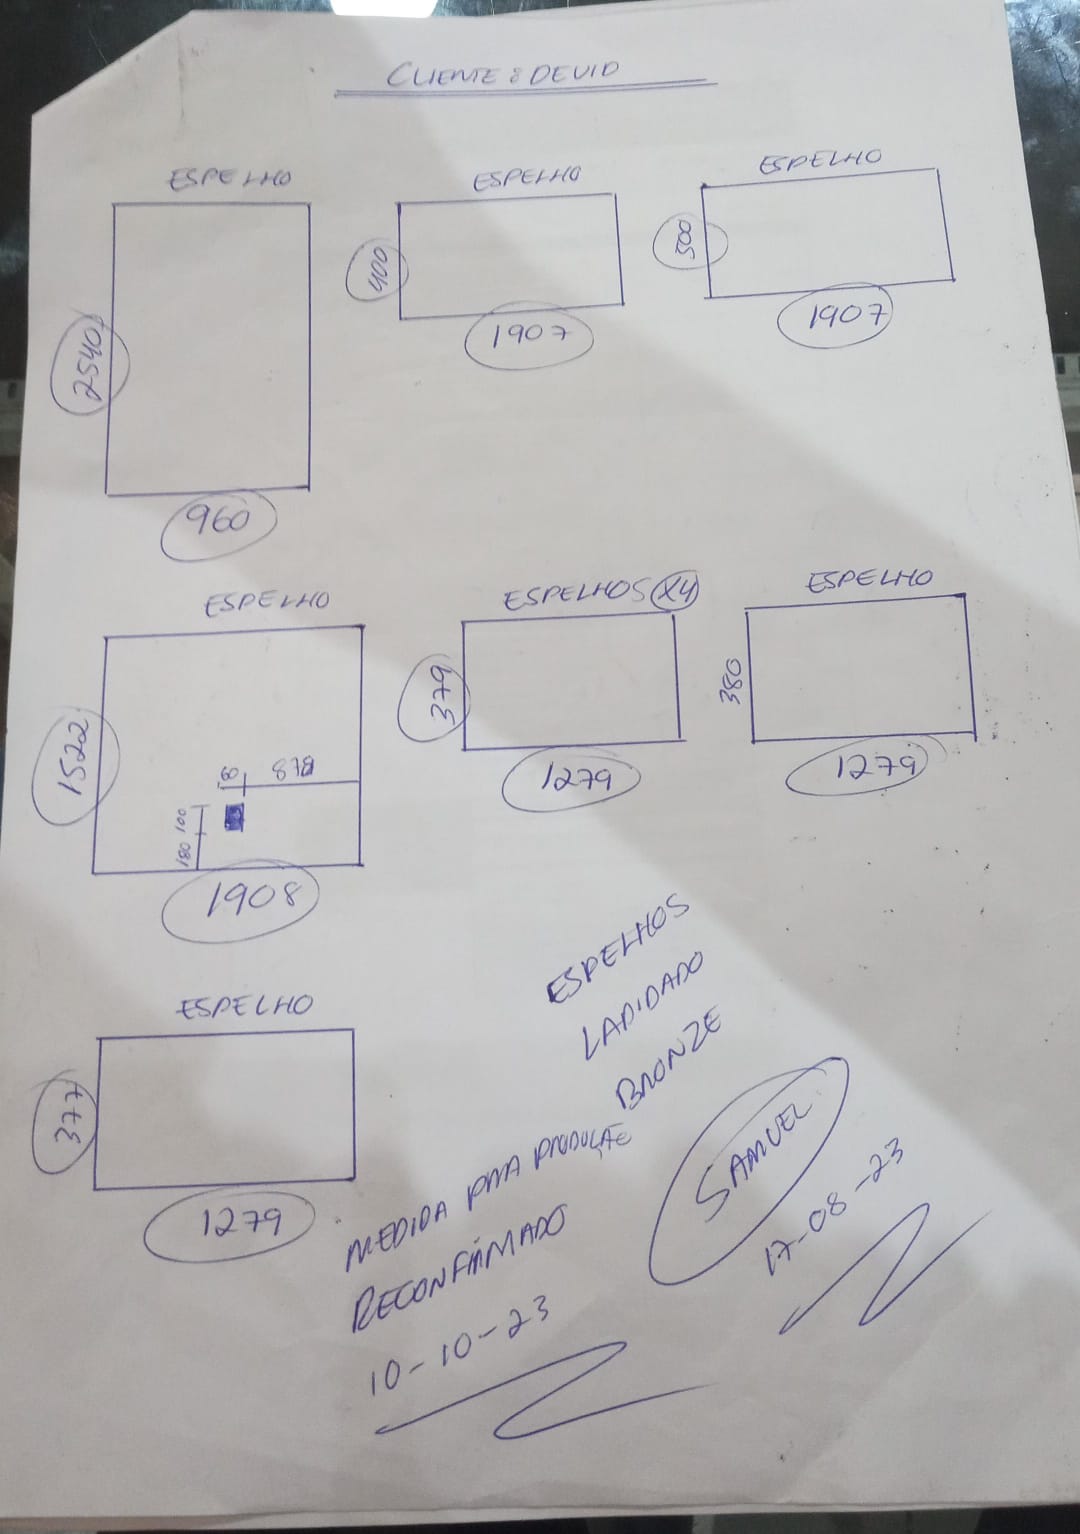 CLIENTE: DEVID
ESPELHO
2540
960
ESPELHO
400
1907
ESPELHO
500
1907
ESPELHO
1522
878
180 100
1908
ESPELHOS X4
379
1279
ESPELHO
380
1279
ESPELHO
377
1279
ESPELHOS
LAPIDADO
BRONZE
MEDIDA PARA PRODUÇÃO
RECONFIRMADO
10-10-23
SAMUEL
17-08-23